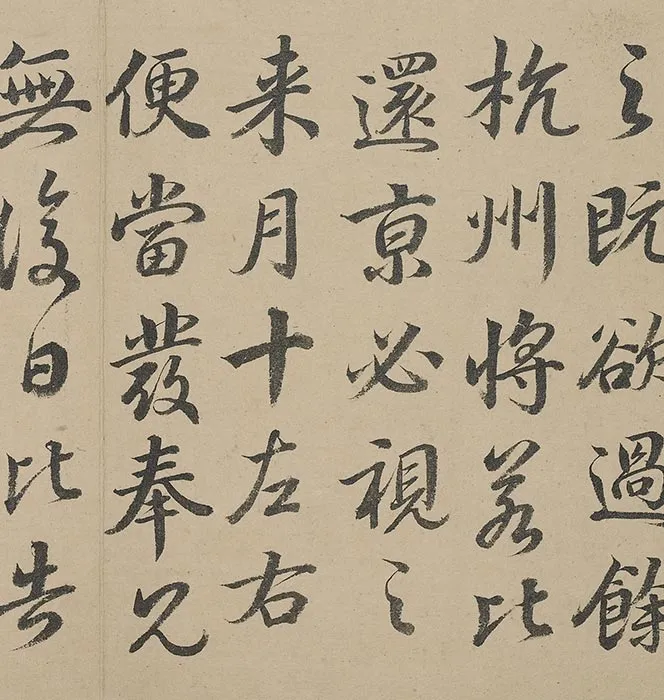 之既欲過餘
杭州將若比
還京必視之
来月十左右
便當發奉兄
無復日比告